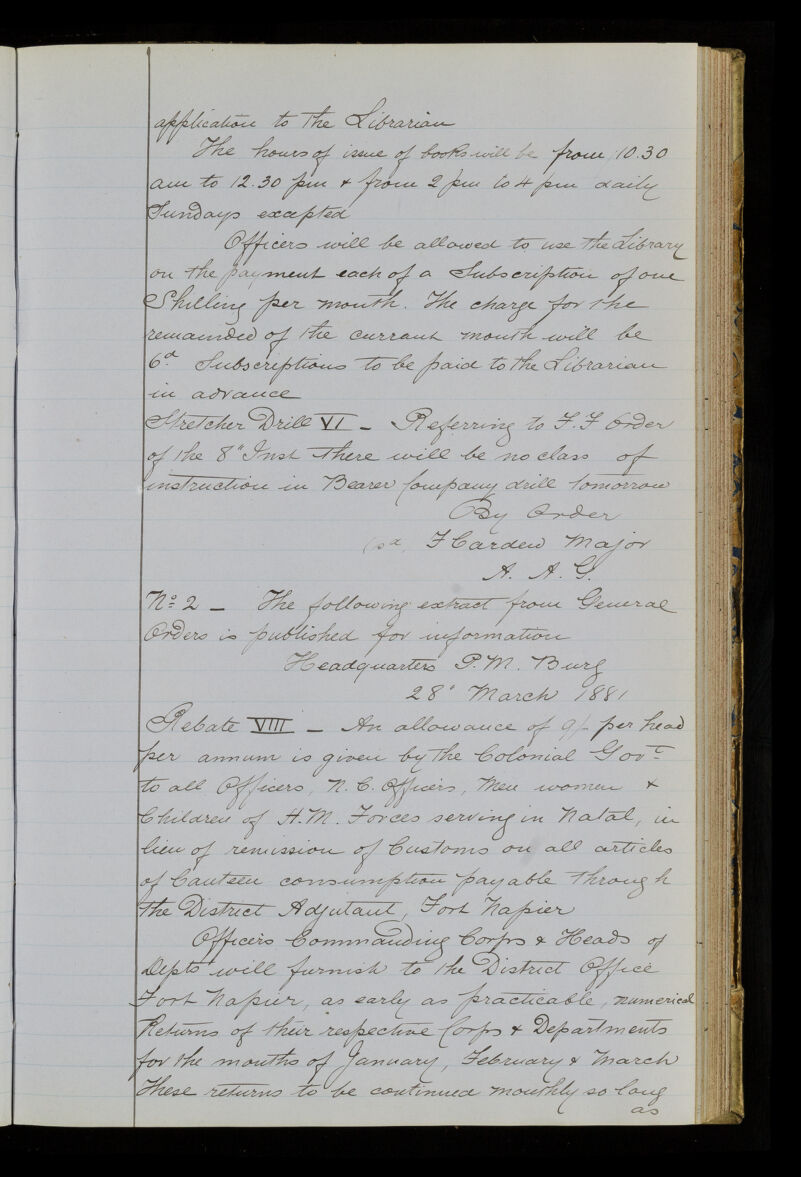 application to the Librarian
The hours of issue of books will be from 10.30
am to 12.30 pm & from 2 pm to 4 pm daily
Sundays excepted
Officers will be allowed to use the Library
on the payment each of a Subscription of one
Shilling per month. The charge for the
remainded of the currant month will be
6d Subscriptions to be paid to the Librarian
in advance
Stretcher Drill VI - Referring to F.F Order
of the 8" Inst there will be no class of
instruction in Bearer Company drill tomorrow
By Order
(sd, F Cardew Major
A. A. G.
No 2 - The following extract from General
Orders is published for information
Headquarters P.M. Burg
28" March 1881
Rebate VIII - An allowance of 9/- per head
per annum is given by the Colonial Govt
to all Officers, N.C. Officers, Men women &
Children of H.M. Forces serving in Natal, in
lieu of remission of Customs on all articles
of Canteen consumption payable through
the District Adjutant, Fort Napier
Officers Commanding Corps & Heads of
Depts will furnish to the District Office
Fort Napier, as early as practicable, numerical
Returns of their respective Corps & Departments
for the months of January, February & March
These returns to be continued monthly so long
as